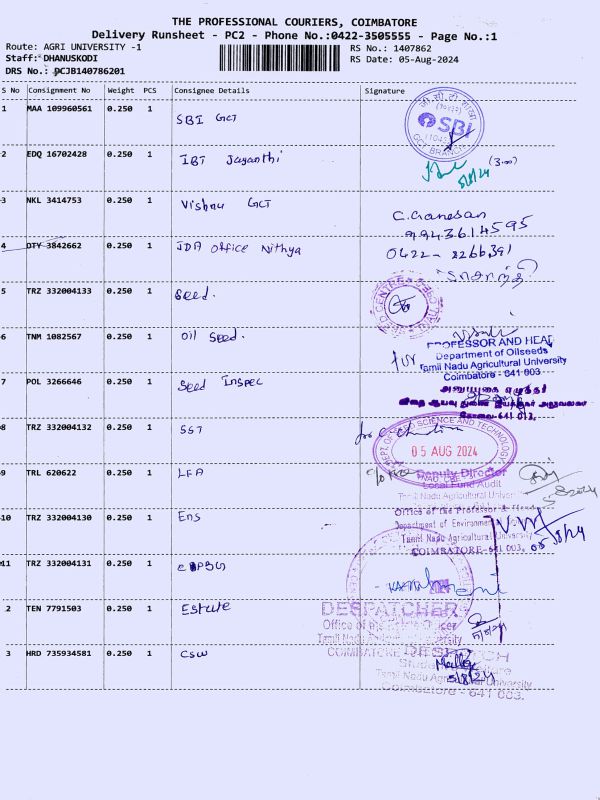 THE PROFESSIONAL COURIERS, COIMBATORE
Delivery Runsheet - PC2 - Phone No.:0422-3505555 - Page No.:1
Route: AGRI UNIVERSITY -1
RS No.: 1407862
Staff: DHANUSKODI
RS Date: 05-Aug-2024
DRS No.: PCJB140786201
S No Consignment No Weight PCS Consignee Details Signature
1 MAA 109960561 0.250 1 SBI GCT
SBI
GCT BRANCH
2 EDQ 16702428 0.250 1 IBT Jayanthi
(3.00)
5/8/24
3 NKL 3414753 0.250 1 Vishnu GCT
C. Ganesan
9943614595
4 DTY 3842662 0.250 1 JDA Office Nithya
0422-2266391
5 TRZ 332004133 0.250 1 Seed.
SEED CENTRE
6 TNM 1082567 0.250 1 Oil Seed.
PROFESSOR AND HEAD
for
Department of Oilseeds
Tamil Nadu Agricultural University
Coimbatore - 641 003
7 POL 3266646 0.250 1 Seed Inspec
கோவை-641 013.
8 TRZ 332004132 0.250 1 SST
DEPT. OF SEED SCIENCE AND TECHNOLOGY
05 AUG 2024
9 TRL 620622 0.250 1 LFA
Deputy Director
Local Fund Audit
Tamil Nadu Agricultural Univer
5/8/2024
10 TRZ 332004130 0.250 1 Ens
Office of the Professor & Head
Department of Environment
Tamil Nadu Agricultural University
COIMBATORE-641 003.
05/8/24
11 TRZ 332004131 0.250 1 CPBG
2 TEN 7791503 0.250 1 Estate
DESPATCHER
Office of the Estate Officer
Tamil Nadu Agricultural University
COIMBATORE
5/8/24
3 HRD 735934581 0.250 1 CSW
DESPATCH
Tamil Nadu Agricultural University
Coimbatore - 641 003.
5/8/24